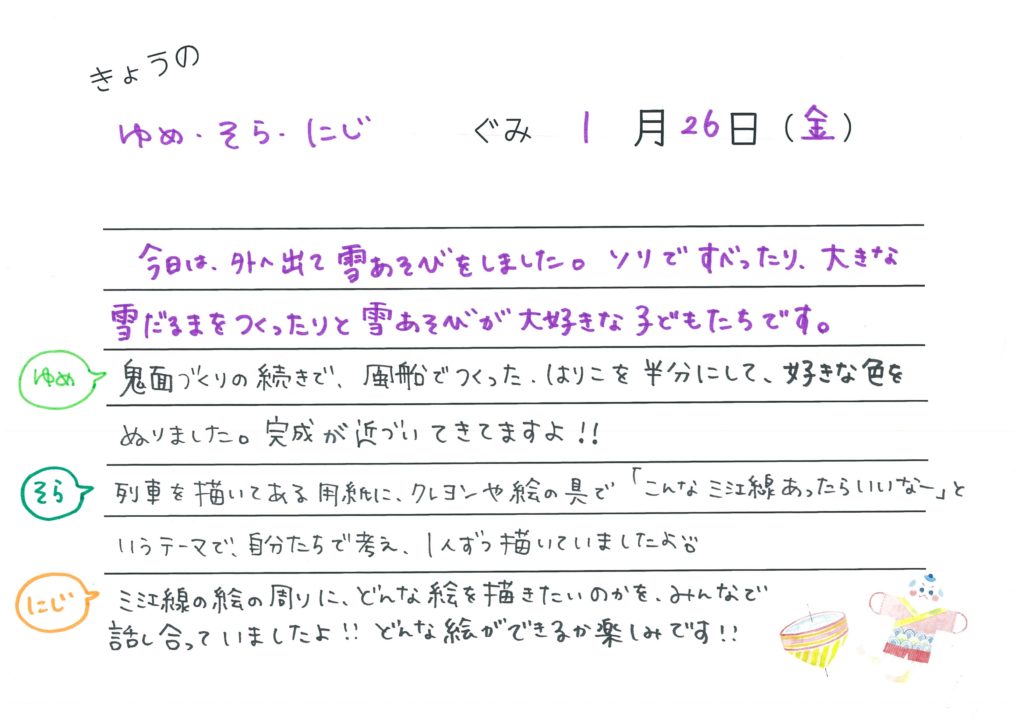 きょうの
ゆめ・そら・にじ ぐみ 1月26日(金)
今日は、外へ出て雪あそびをしました。ソリですべったり、大きな
雪だるまをつくったりと雪あそびが大好きな子どもたちです。
ゆめ 鬼面づくりの続きで、風船でつくった、はりこを半分にして、好きな色を
ぬりました。完成が近づいてきてますよ!!
そら 列車を描いてある用紙に、クレヨンや絵の具で「こんな三江線あったらいいなー」と
いうテーマで、自分たちで考え、1人ずつ描いていましたよ。
にじ 三江線の絵の周りに、どんな絵を描きたいのかを、みんなで
話し合っていましたよ!! どんな絵ができるか楽しみです!!